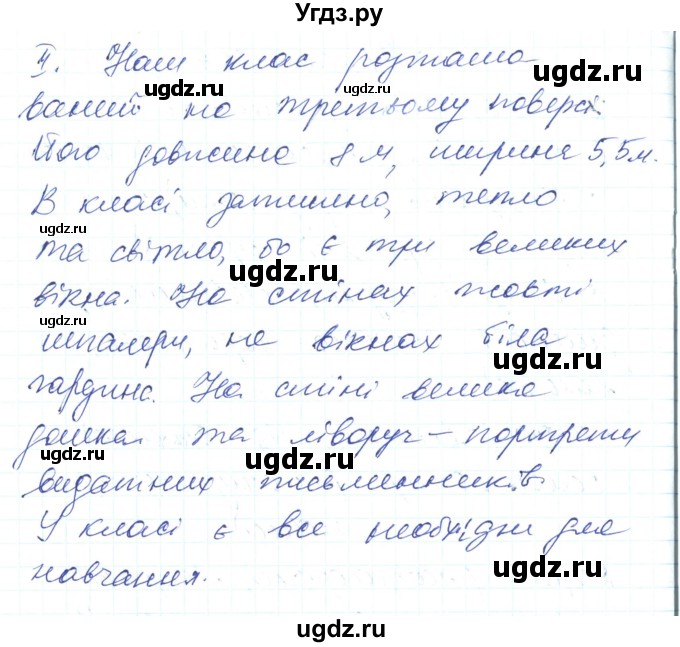 Угдз.ру
ІІ. Наш клас розташо
ugdz.ru
ваний на третьому поверсі.
ugdz.ru
Його довжина 8 м, ширина 5,5 м.
В класі затишно, тепло
ugdz.ru
та світло, бо є три великих
ugdz.ru
вікна. На стінах жовті
ugdz.ru
шпалери, на вікнах біла
ugdz.ru
гардина. На стіні велика
ugdz.ru
дошка та ліворуч – портрети
ugdz.ru
видатних письменників.
У класі є все необхідне для
ugdz.ru
навчання.
ugdz.ru
ugdz.ru